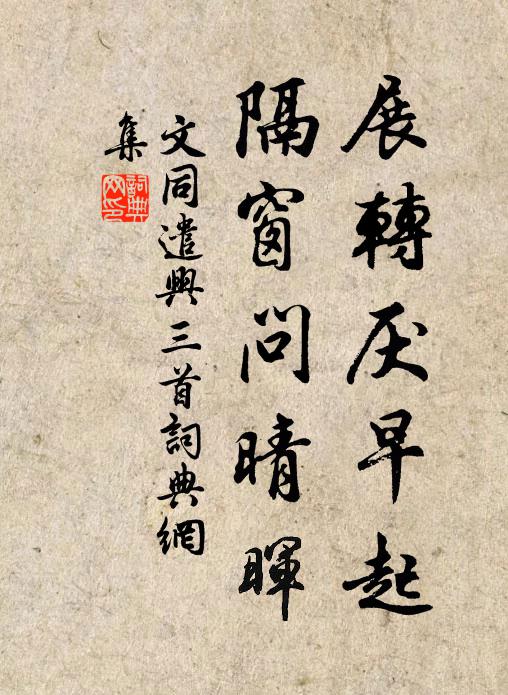 展轉厌早起
隔窗問晴暉
文同遣興三首詞典網
集
詞典
网印